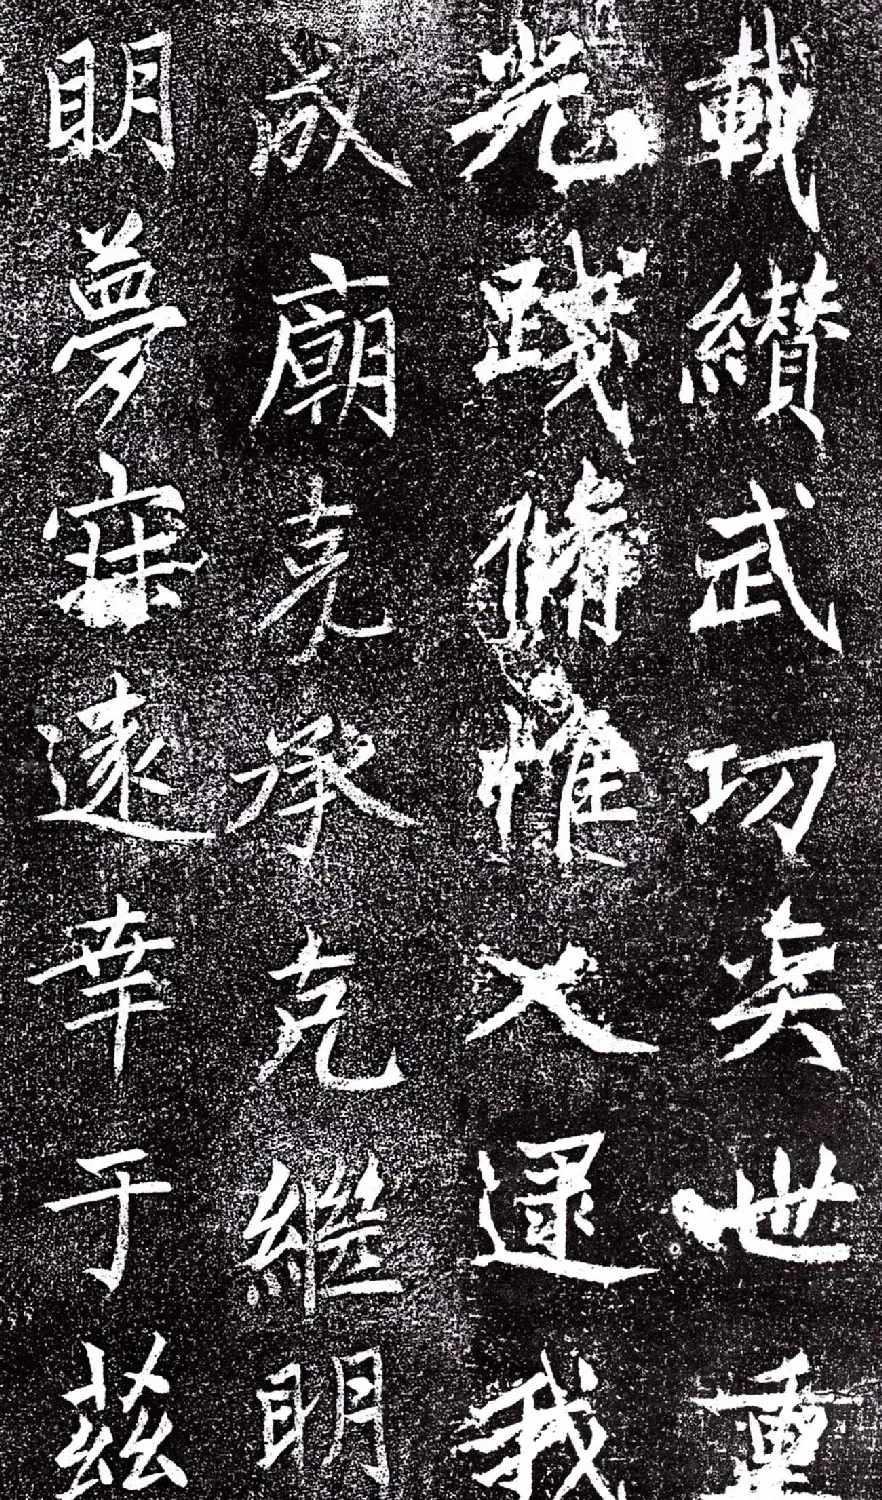 載纘武功奕世重
光踐脩惟乂逮我
成廟克承克繼明
明夢寐遠幸于茲